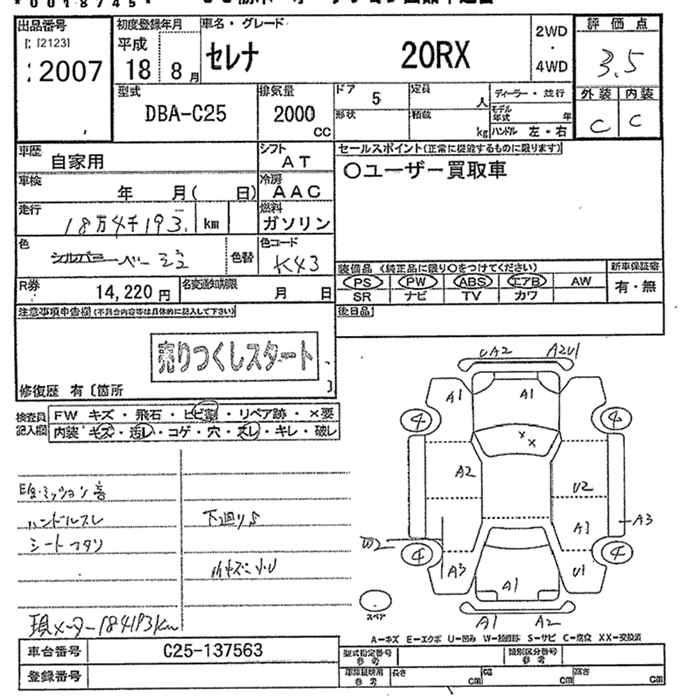 *0018745*
出品番号
[2123]
2007
初度登録年月
平成
18 8月
車名・グレード
セレナ 20RX
2WD
・
4WD
評価点
3.5
外装 内装
C C
型式
DBA-C25
排気量
2000
CC
ドア
5
形状
定員
人
積載
kg
ディーラー・並行
モデル年式 年
ハンドル 左・右
車歴
自家用
シフト
AT
車検
年 月( 日)
冷房
AAC
走行
18万4千193 km
燃料
ガソリン
色
シルバー
色替
色コード
K43
R券
14,220円
名変通知期限
月 日
セールスポイント(正常に従能するものに限ります)
〇ユーザー買取車
装備品 (純正品に限り〇をつけてください)
PS PW ABS エアB AW
SR ナビ TV カワ
新車保証書
有・無
後日品
注意事項申告欄(不具合内容等は具体的に記入して下さい)
売りつくしスタート
修復歴 有〔箇所 〕
検査員
記入欄
FW キズ・飛石・ヒビ割・リペア跡・×要
内装・キズ・汚レ・コゲ・穴・スレ・キレ・破レ
ハンドルスレ
シートヘタリ
下廻りS
現メーター184193km
UA2 A2U1
A1 A1
4 4
A2 U2
W2 A1 A3
4 4
A3 A1 U1
スペア
A1 A2
A-キズ E-エクボ U-凹み W-補修跡 S-サビ C-腐食 XX-交換済
車台番号
C25-137563
登録番号
型式指定番号
参考
類別区分番号
参考
車庫証明用
参考
長さ cm
幅 cm
高さ cm